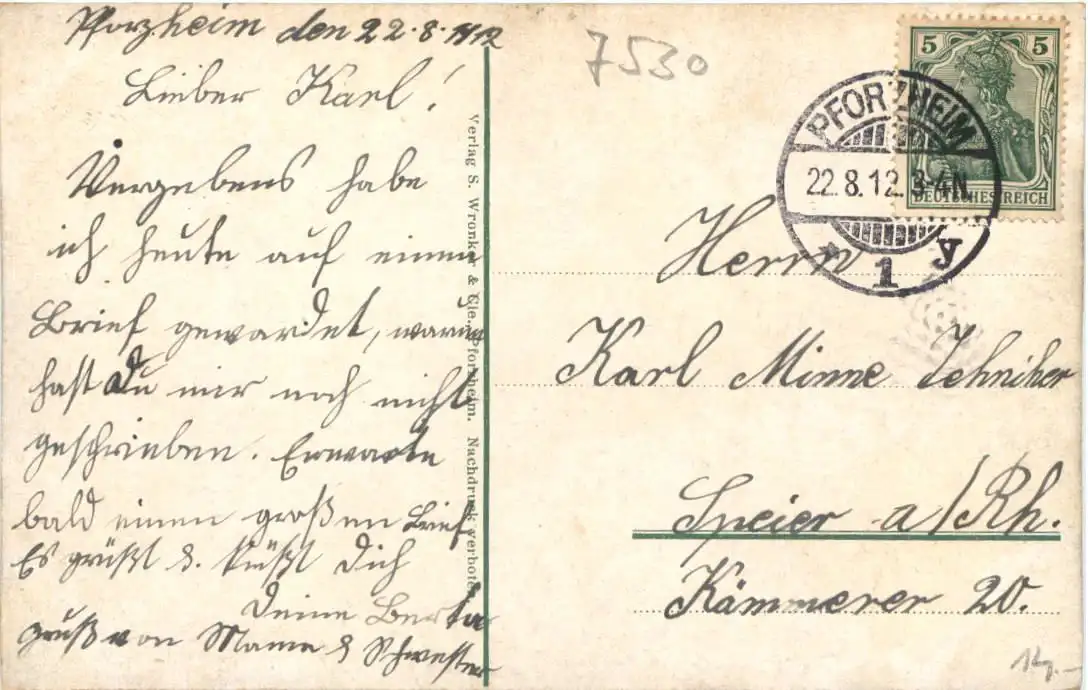 Pforzheim den 22.8.1912
Lieber Karl!
Vergebens habe
ich heute auf einen
Brief gewardet, warum
hast Du mir noch nicht
geschrieben. Erwarte
bald einen großen Brief
Es grüßt & küßt Dich
Deine Berta
Gruß von Mama & Schwester
Verlag S. Wronker & Cie., Pforzheim. Nachdruck verboten.
7530
5 5
DEUTSCHES REICH
PFORZHEIM
22.8.12.3-4N.
* 1 y
Herrn
Karl Minne Tehniker
Speier a/Rh.
Kämmerer 20.